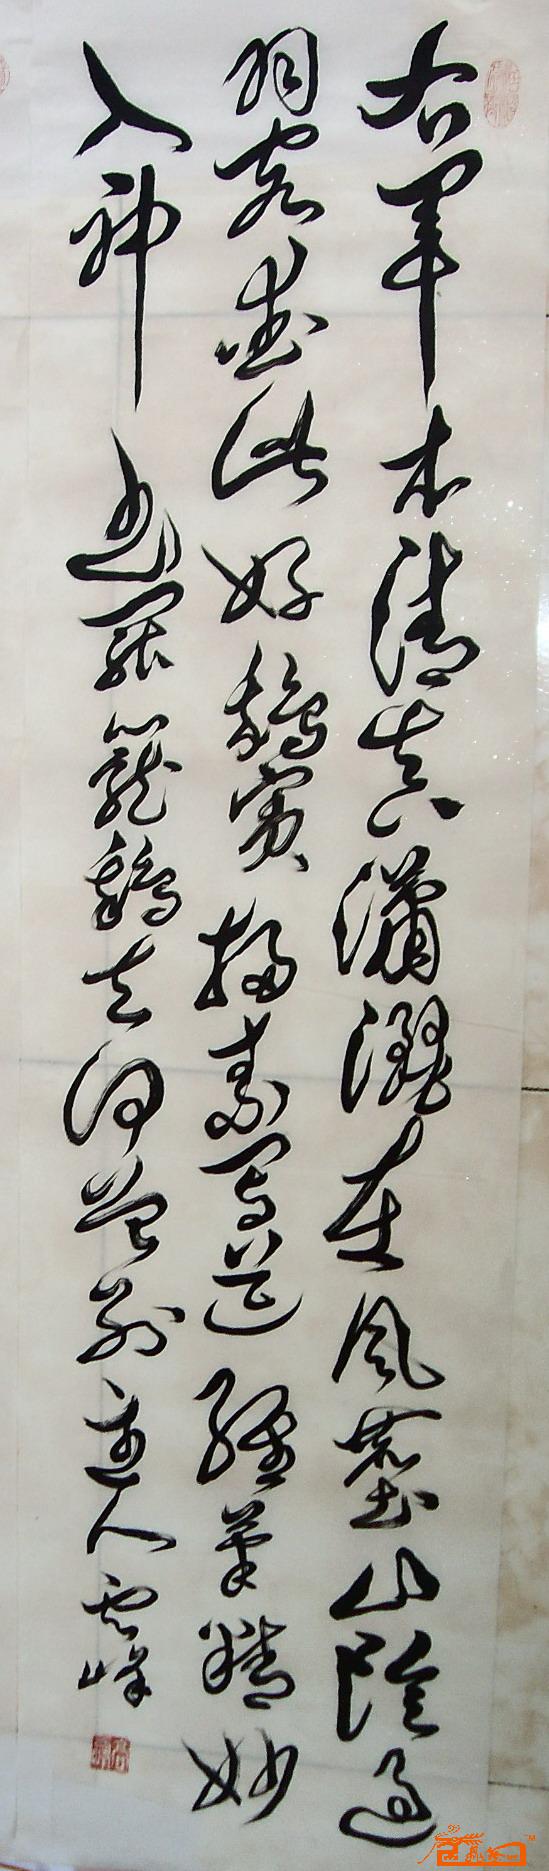 右军本清真瀟灑在风塵山陰過
羽客愛此好鵝賓掃素寫道經筆精妙
入神書罷籠鵝去何曾別主人雲峰